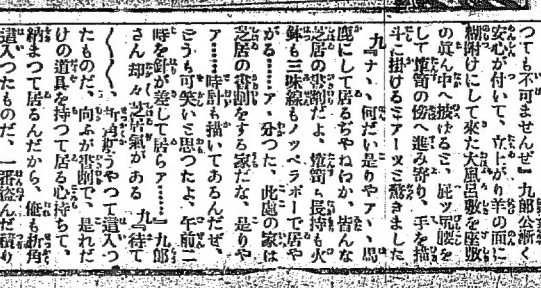 つても不可ませんぜ』九郎公漸く
安心が付いて、立上がり羊の面に
糊附けにして来た大風呂敷を座敷
の真ん中へ披げるミ、屁ッ放腰を
して簞笥の傍へ進み寄り、手を描
斗に掛けるミアーッミ驚きました
九『ナヽ、何だい是りやアヽ、馬
鹿にして居るぢやねわか、皆んな
芝居の書割だよ、簞笥も長持も火
鉢も三味線もノッペラボーで居や
がる……ア、分つた、此處の家は
芝居の書割をする家だな、是りや
ア……時計も描いてあるんだぜ、
こうも可笑いミ思つたよ、午前二
時を針が差して居らア……』九郎
さん却々芝居氣がある 九『待て
〱〱、折角斯うやつて這入つ
たものだ、向ふが書割で、是れだ
けの道具を持つて居る心持ちで、
納まつて居るんだから、俺も折角
這入つたものだ、一番盗んだ積り